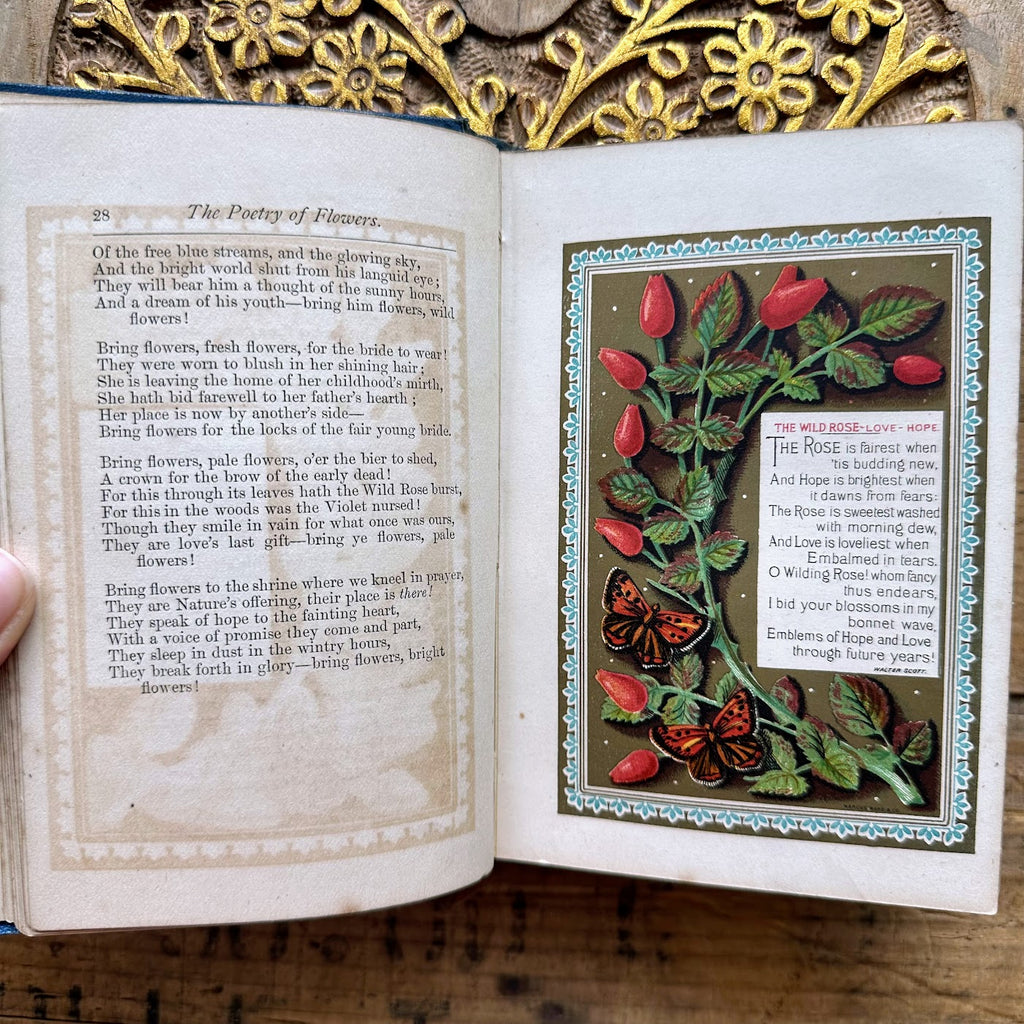 28 The Poetry of Flowers.
Of the free blue streams, and the glowing sky,
And the bright world shut from his languid eye;
They will bear him a thought of the sunny hours,
And a dream of his youth—bring him flowers, wild
flowers!
Bring flowers, fresh flowers, for the bride to wear!
They were worn to blush in her shining hair;
She is leaving the home of her childhood's mirth,
She hath bid farewell to her father's hearth;
Her place is now by another's side—
Bring flowers for the locks of the fair young bride.
Bring flowers, pale flowers, o'er the bier to shed,
A crown for the brow of the early dead!
For this through its leaves hath the Wild Rose burst,
For this in the woods was the Violet nursed!
Though they smile in vain for what once was ours,
They are love's last gift—bring ye flowers, pale
flowers!
Bring flowers to the shrine where we kneel in prayer,
They are Nature's offering, their place is there!
They speak of hope to the fainting heart,
With a voice of promise they come and part,
They sleep in dust in the wintry hours,
They break forth in glory—bring flowers, bright
flowers!
THE WILD ROSE-LOVE-HOPE.
THE ROSE is fairest when
'tis budding new,
And Hope is brightest when
it dawns from fears:
The Rose is sweetest washed
with morning dew,
And Love is loveliest when
Embalmed in tears.
O Wilding Rose! whom fancy
thus endears,
I bid your blossoms in my
bonnet wave,
Emblems of Hope and Love
through future years!
WALTER SCOTT.